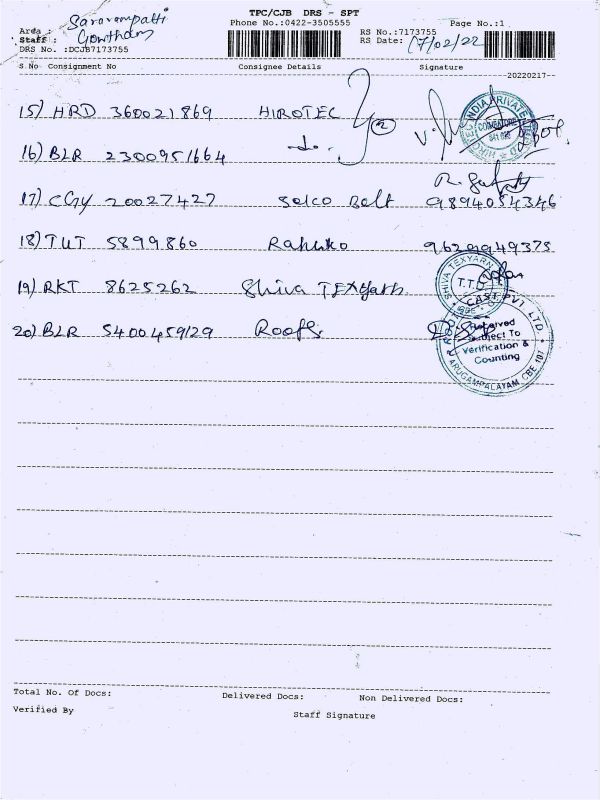 TPC/CJB DRS - SPT
Phone No.:0422-3505555 Page No.:1
Area : Saravampatti
Staff : Gowtham
DRS No. :DCJB7173755
RS No.:7173755
RS Date: 17/02/22
S.No Consignment No Consignee Details Signature
20220217
15) HRD 360021869 HIROTEC 2
16) BLR 2300951664 - do -
17) CGY 20027427 Selco Belt 9894054346
18) TUT 5899860 9629949373
19) RKT 8625262 Shiva TEXyarn
20) BLR 5400459129 Roofs
INDIA PRIVATE
COIMBATORE
SHIVA TEXYARN
T.T.D
CAST PVT LTD.
Received
Subject To
Verification &
Counting
ARUGAMPALAYAM CBE 107
Total No. Of Docs: Delivered Docs: Non Delivered Docs:
Verified By Staff Signature